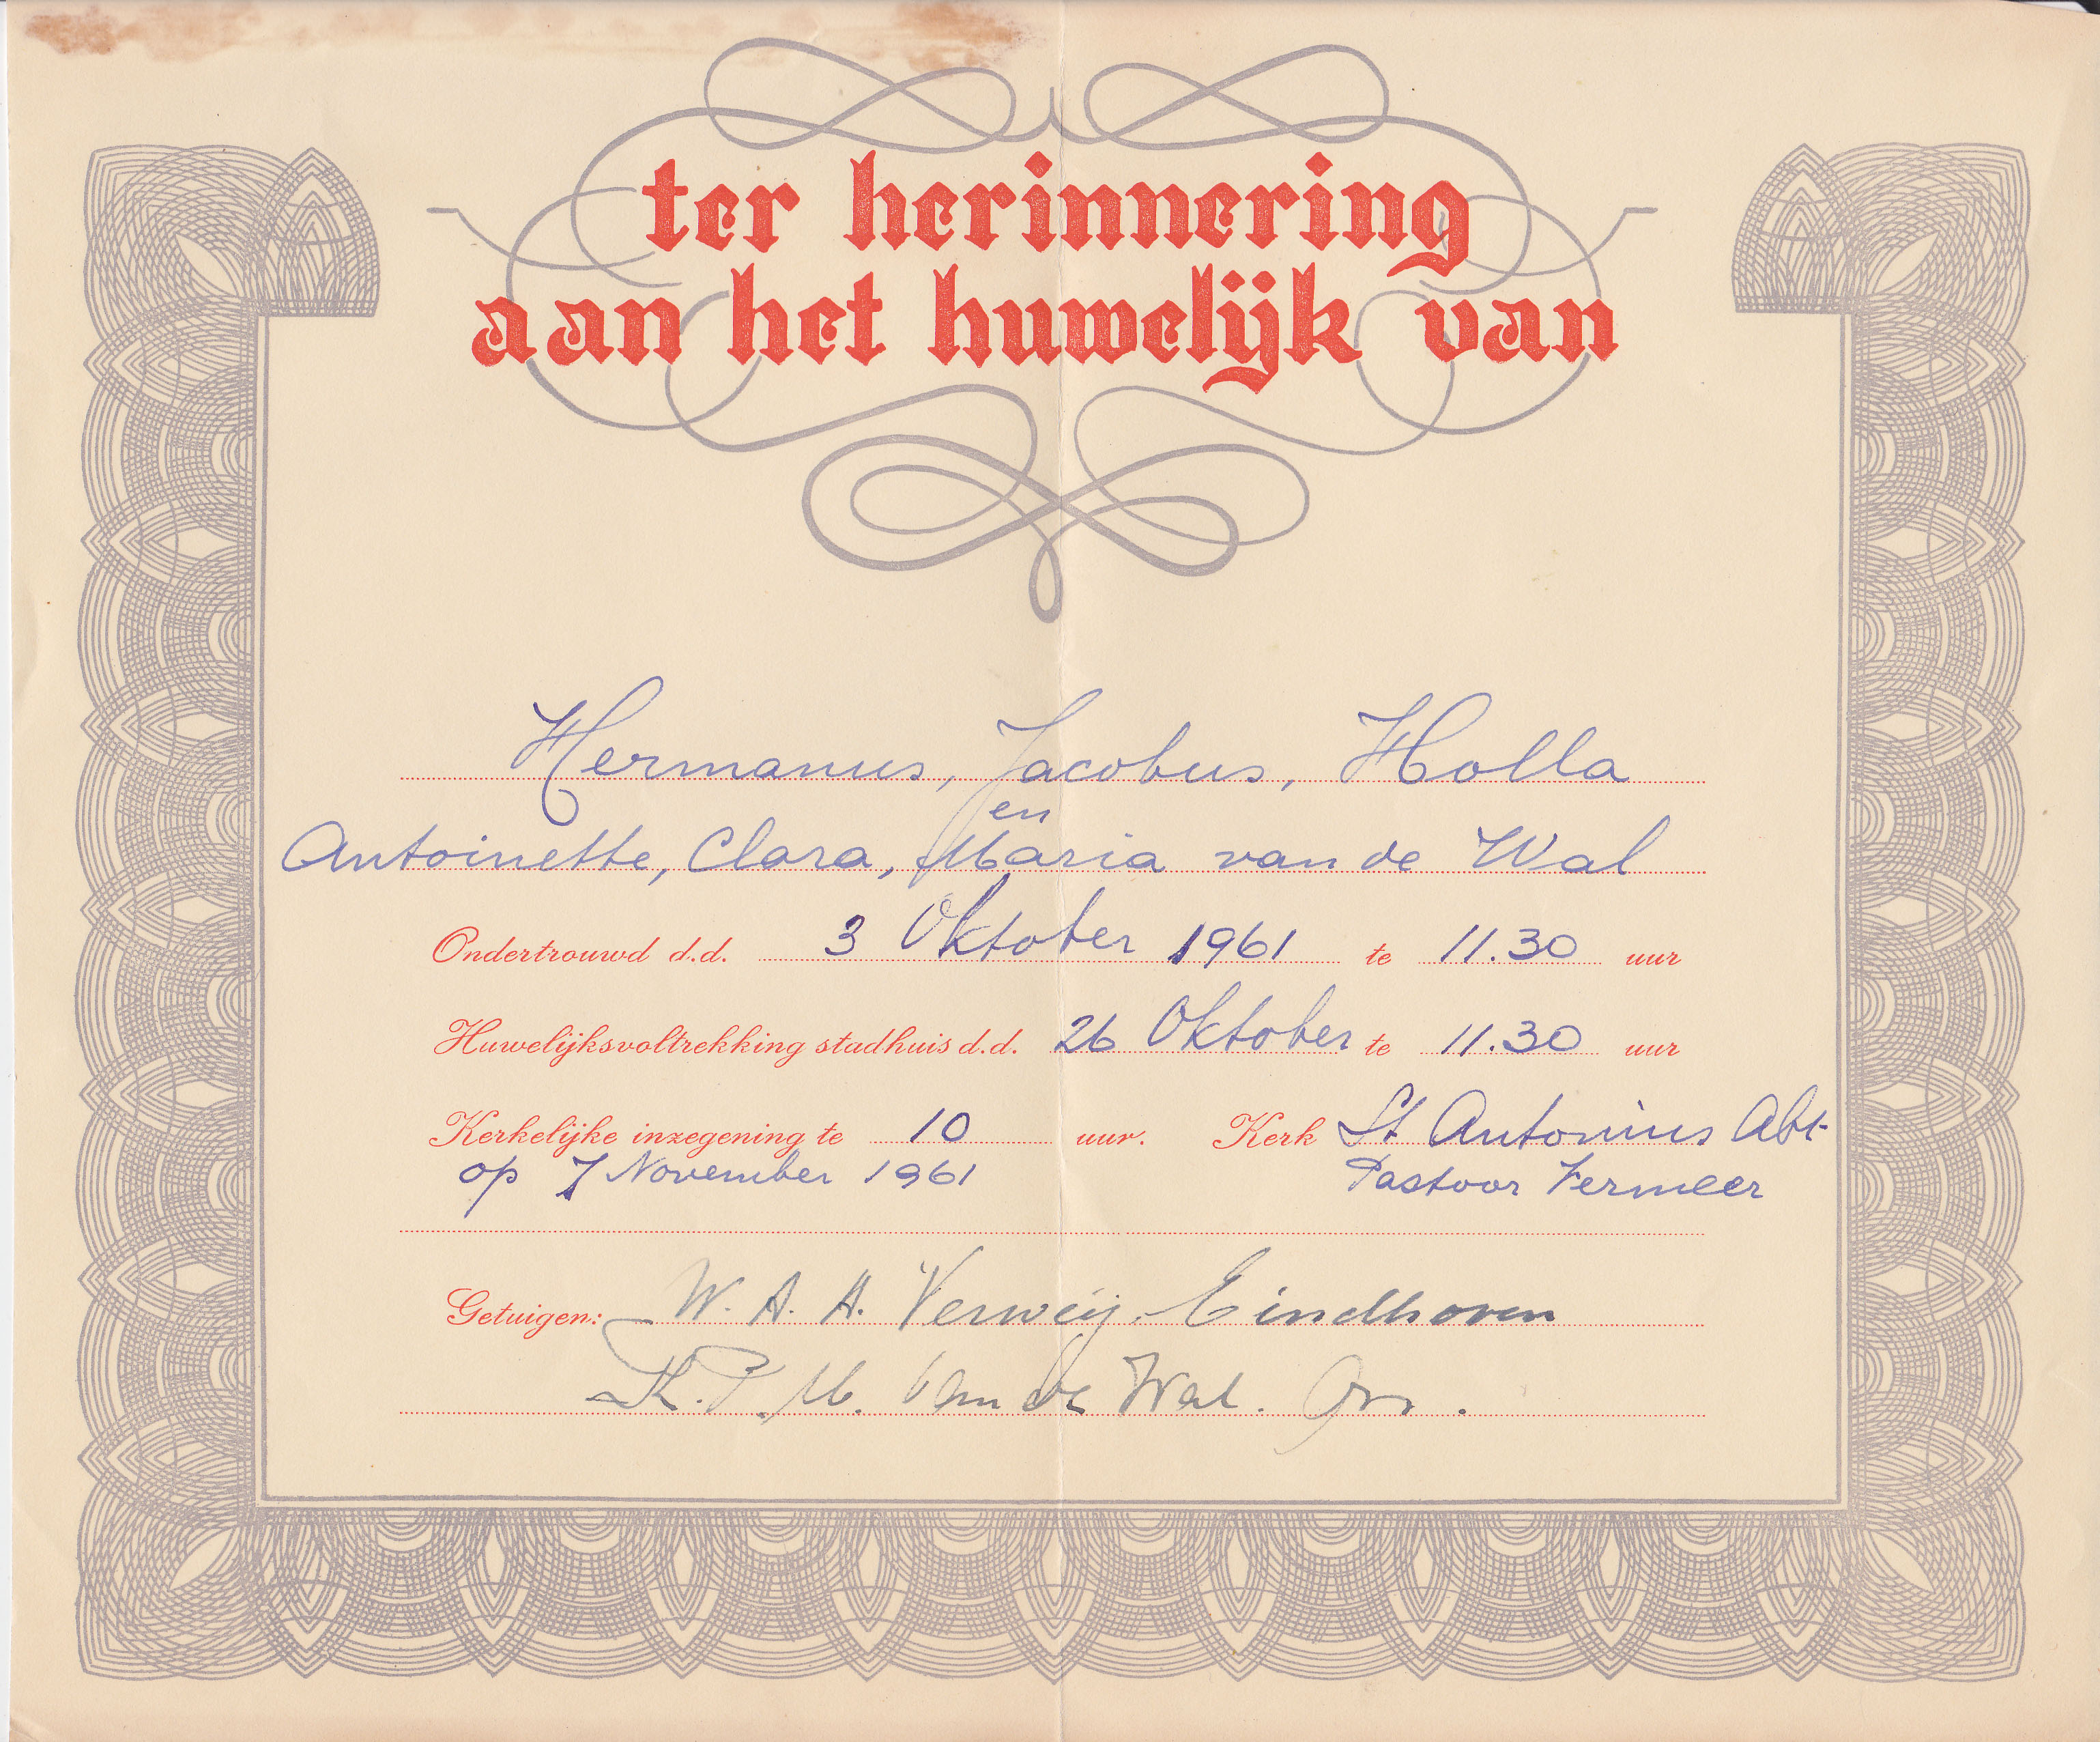 ter herinnering
aan het huwelijk van
Hermanus, Jacobus, Holla
en
Antoinette, Clara, Maria van de Wal
Ondertrouwd d.d. 3 Oktober 1961 te 11.30 uur
Huwelijksvoltrekking stadhuis d.d. 26 Oktober te 11.30 uur
Kerkelijke inzegening te 10 uur. Kerk St Antonius Abt
op 7 November 1961 Pastoor Vermeer
Getuigen: W. A. A. Verweij. Eindhoven
P. M. van de Wal.